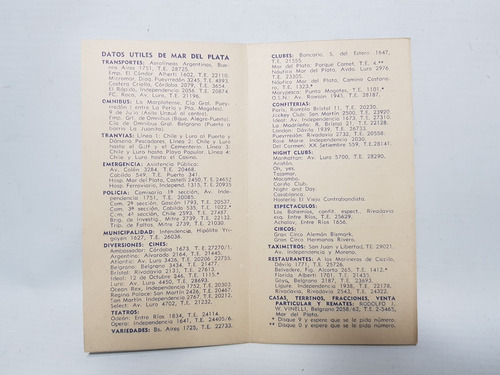 DATOS UTILES DE MAR DEL PLATA
TRANSPORTES: Aerolíneas Argentinas, Bue-
nos Aires 1751, T.E. 28725.
Emp. El Cóndor, Alberti 1602, T.E. 22110.
Micromar, Diag. Pueyrredón 3245, T.E. 4393.
Costera Criolla, Córdoba 2079, T.E. 3654.
El Rápido, Independencia 2056, T.E. 20874
FC. Roca, Av. Luro, T.E. 21196.
OMNIBUS: La Marplatense, Cía Gral. Puey-
rredón ( entre La Perla y Pta. Mogotes),
9 de Julio (Avila Unzué al centro).
Emp. Gri. de Omnibus (Bapt. Alegre-Puerto).
Cía de Omnibus (Gral. Belgrano (Centro al
barrio La Juanita).
TRANVIAS: Línea 1: Chile y Luro al Puerto y
Dársena Pescadores. Línea 2: Chile y Luro
hasta el Golf y el Cementerio. Línea 3:
Chile y Luro hasta Faro Popular. Línea 4:
Chile y Luro hasta el Casino.
EMERGENCIA: Asistencia Pública:
Av. Colón 3284. T.E. 20468.
Cabildo 549, T.E. Puerto 341.
Hosp. Mar del Plata, Castelli 2450, T.E. 24652
Hosp. Ferroviario, Independ. 1315, T.E. 20935
POLICIA: Comisaría 1ª sección, Av. Inde-
pendencia 1751, T.E. 20085.
Com. 2ª sección, Gascón 1799, T.E. 20537.
Com. 3ª sección, Cabildo 1795, T.E. 1022.*
C.m. 4ª sección, Chile 2593, T.E. 27487.
Brig. de Investig., Mitre 2739, T.E. 22132.
Trib. de Faltas, Mitre 2739, T.E. 21030.
MUNICIPALIDAD: Intendencia, Hipólito Yri-
goyen 1627, T.E. 26036.
DIVERSIONES: CINES:
Ambassador: Córdoba 1673, T.E. 27270/1.
Argentino: Alvarado 2164, T.E. 21440.
Atlantic: Av. Luro 3426, T.E. 20206 22735.
Belgrano: Belgrano
Electric: Brasil
Ideal: 12 de Octubre 246, T.E. 1115.*
Luro: Av. Luro 4450, T.E. 21243.
Ocean Rex, Independencia 1752, T.E. 20302.
Regina Palace: San Martín 2426, T.E. 20467.
San Martín: Independencia 1767, T.E. 20212.
Select: Av. Luro 4702, T.E. 21232.
TEATROS:
Odeón: Entre Ríos 1834, T.E. 24114.
Opera: Independencia 1641, T.E. 24405/6.
VARIEDADES: Bs. Aires 1725, T.E. 22733.
CLUBES: Bancario, S. del Estero 1647,
T.E. 21555.
Mar del Plata: Parque Camet, T.E. 4.**
Náutico Mar del Plata, Avda. Luro 2976
T.E. 23305.
Náutico Mar del Plata, Camino Costane-
ro, T.E. 1323.*
Mareyeleca: Punta Mogotes, T.E. 1101.*
O.S.N.: Av. Rawson 1943, T.E. 28187.
CONFITERIAS:
París, Rambla Bristol 11, T.E. 20230.
Jockey Club: San Martín 2500, T.E. 23920.
Ideal: Av. Independencia 1673, T.E. 27310.
La Madrileña: R. Bristol 21, T.E. 22128.
London: Dávila 1939, T.E. 36733.
Pueyrredón: Rivadavia 2732, T.E. 20558.
Rose Marie, Independencia 2030.
Del Carmen: XX Setiembre 559, T.E.28141.
NIGHT CLUBS:
Manhattan: Av. Luro 5700, T.E. 28290.
Aristón.
Oh, yes.
Tassman.
Mocambo.
Caribe Club.
Night and Day.
Casablanca.
Hostería El Viejo Contrabandista.
ESPECTACULOS:
Los Bohemios, confit. espect. Rivadavia
esq. Entre Ríos, T.E. 25629.
Achalay, Entre Ríos 1656.
CIRCOS:
Gran Circo Alemán Bismark.
Gran Circo Hermanos Rivero.
TAXIMETROS: San Juan y Libertad, T.E. 29021.
Av. Independencia y Moreno.
RESTAURANTES: A los Marineros de Ciccilo,
Dávila 1771, T.E. 25726.
Belvedere, Fig. Alcorta 265, T.E. 1412.*
Florida: Alberti 1701, T.E. 21455.
Goya, Belgrano 2187, T.E. 23693.
Ligure: Independencia 1938, T.E. 22178.
Rivadavia, Rivadavia 2543, T.E. 24232.
CASAS, TERRENOS, FRACCIONES, VENTA
PARTICULAR Y REMATES: RODOLFO J.
W. VINELLI, Belgrano 2058/62, T.E. 2-5465,
Mar del Plata.
* Disque 9 y espere que se le pida número.
** Disque 0 y espere que se le pida número.